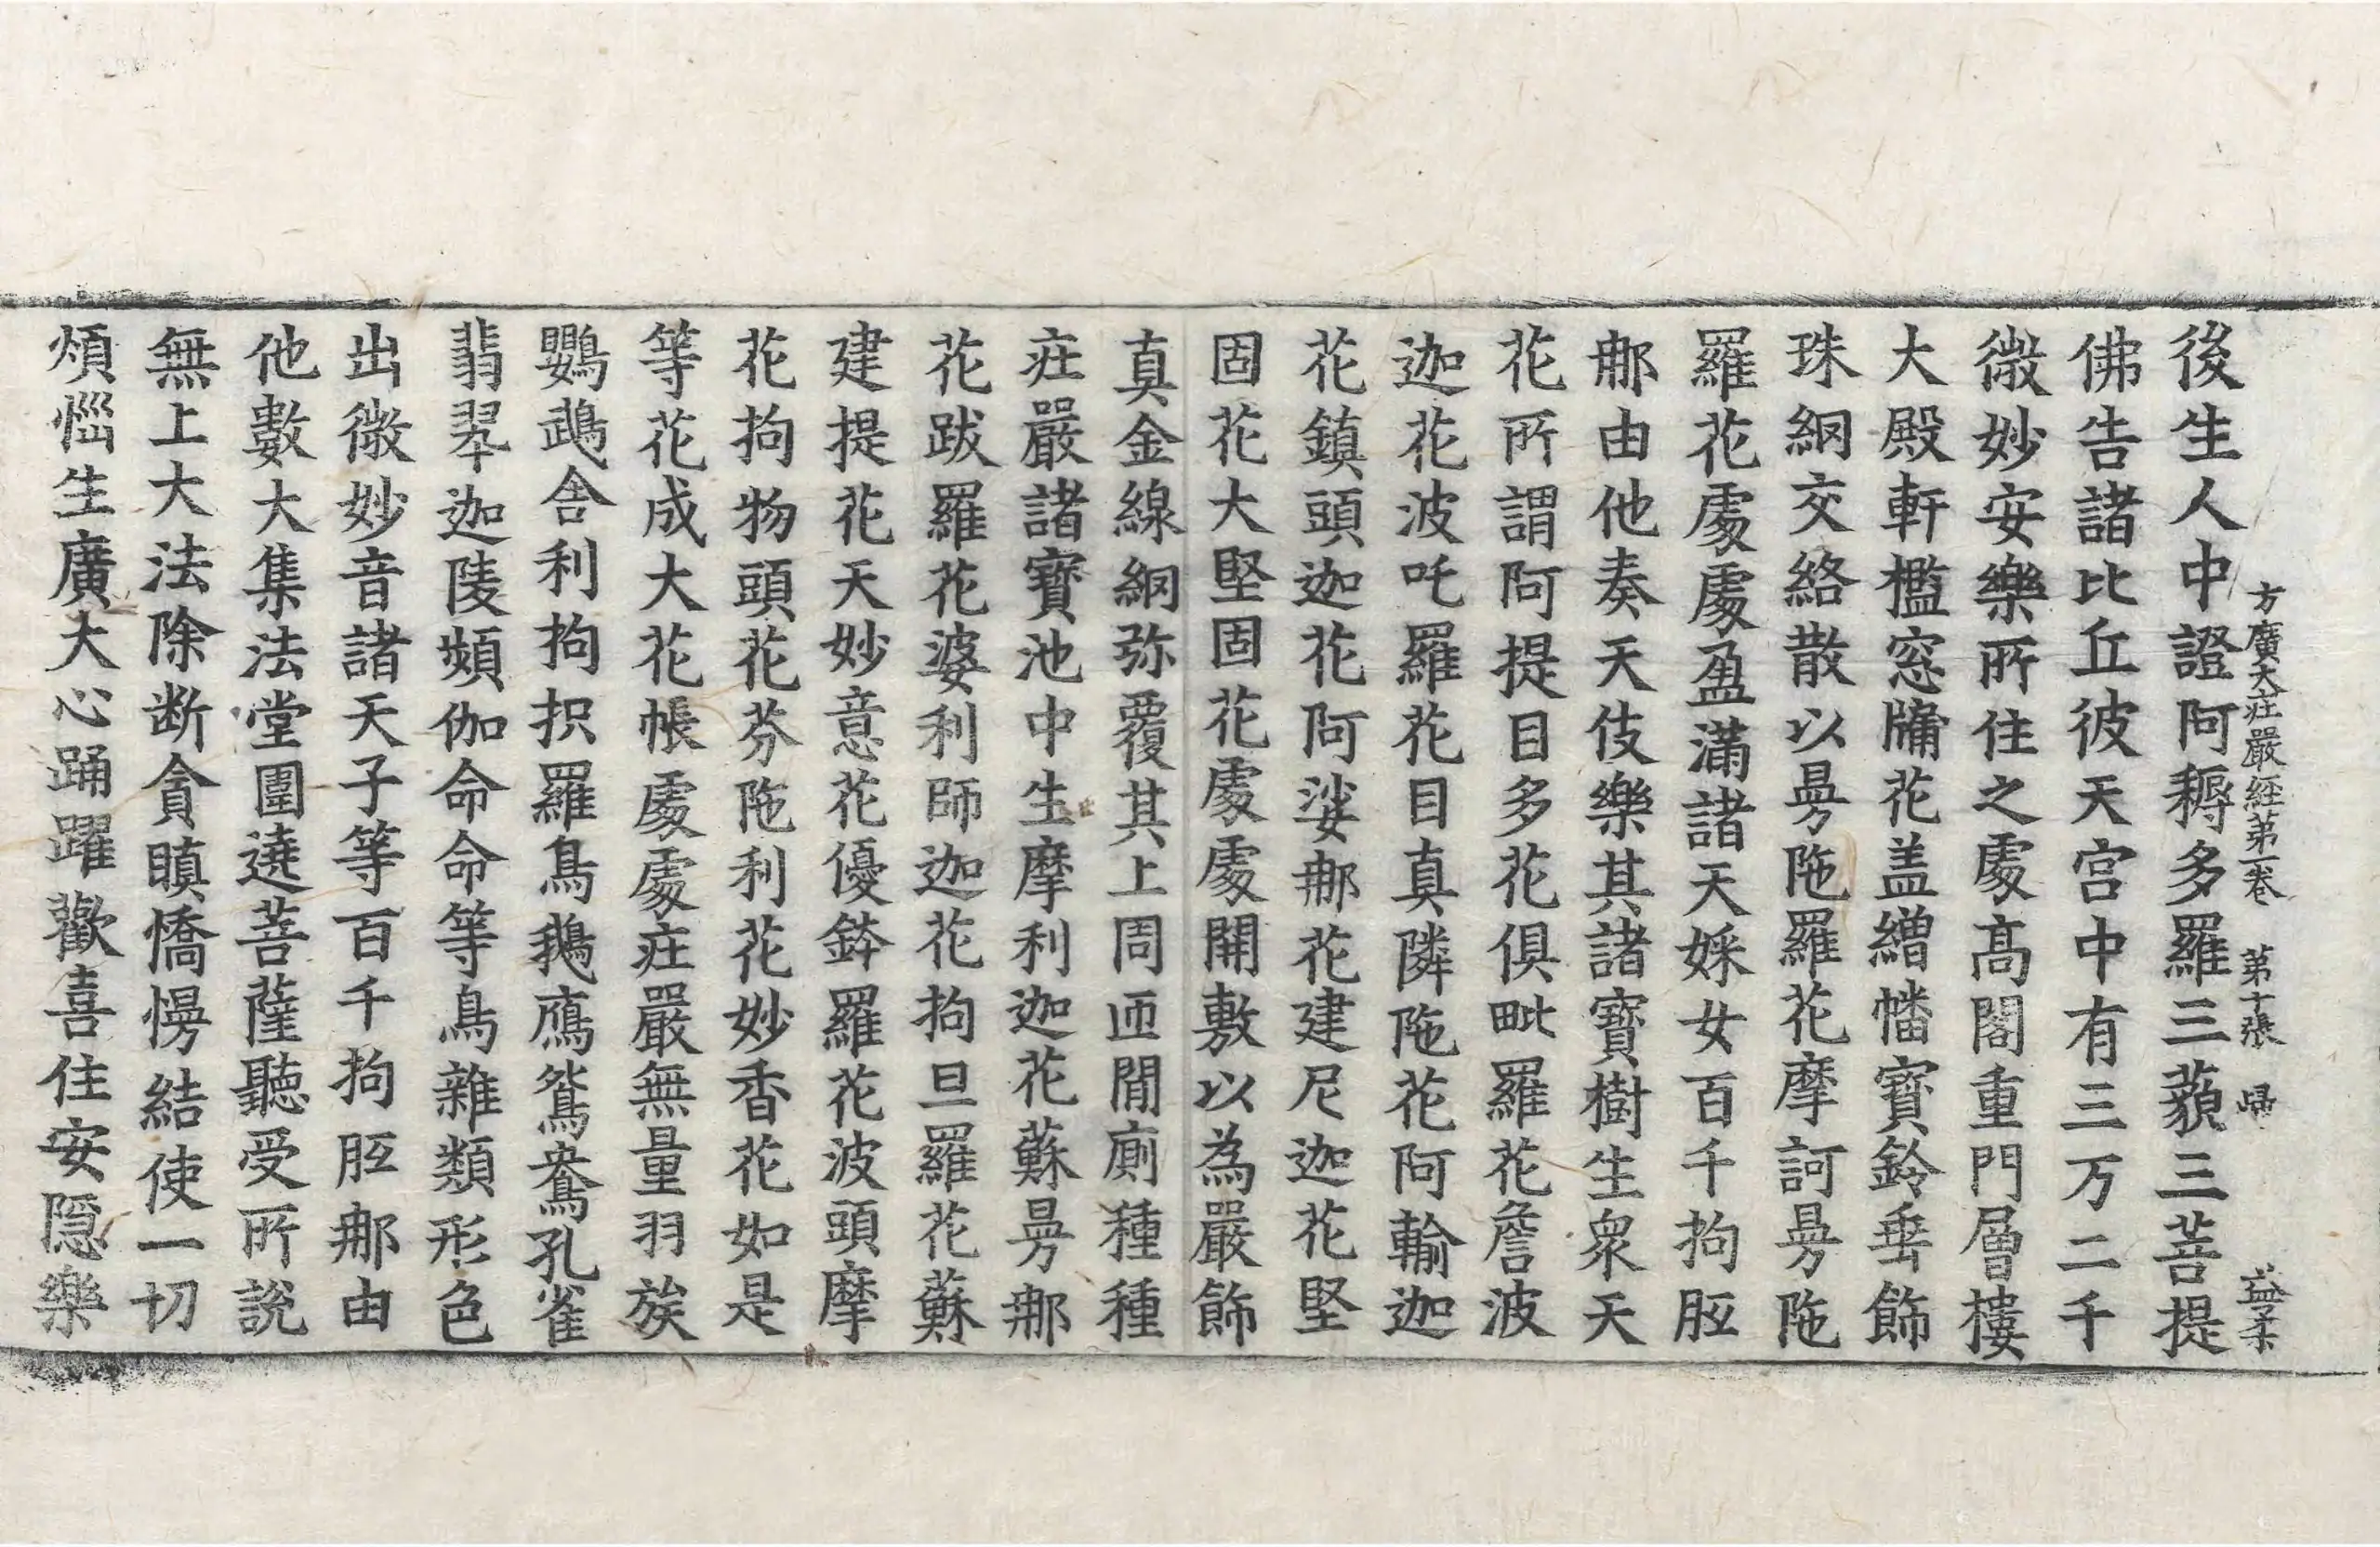 方廣大庄嚴經第一卷 第十張 歸 益柔
後生人中證阿耨多羅三藐三菩提
佛告諸比丘彼天宮中有三万二千
微妙安樂所住之處高閣重門層樓
大殿軒檻窓牖花盖繒幡寶鈴垂飾
珠網交絡散以曼陁羅花摩訶曼陁
羅花處處盈滿諸天婇女百千拘胝
那由他奏天伎樂其諸寶樹生衆天
花所謂阿提目多花俱毗羅花詹波
迦花波吒羅花目真隣陁花阿輸迦
花鎮頭迦花阿娑那花建尼迦花堅
固花大堅固花處處開敷以為嚴飾
真金線網弥覆其上周匝閒廁種種
庄嚴諸寶池中生摩利迦花蘇曼那
花跋羅花婆利師迦花拘旦羅花蘇
建提花天妙意花優鉢羅花波頭摩
花拘物頭花芬陁利花妙香花如是
等花成大花帳處處庄嚴無量羽族
鸚鵡舍利拘抧羅鳥鵝鴈鴛鴦孔雀
翡翠迦陵頻伽命命等鳥雜類形色
出微妙音諸天子等百千拘胝那由
他數大集法堂圍遶菩薩聽受所說
無上大法除断貪瞋憍慢結使一切
煩惱生廣大心踊躍歡喜住安隱樂